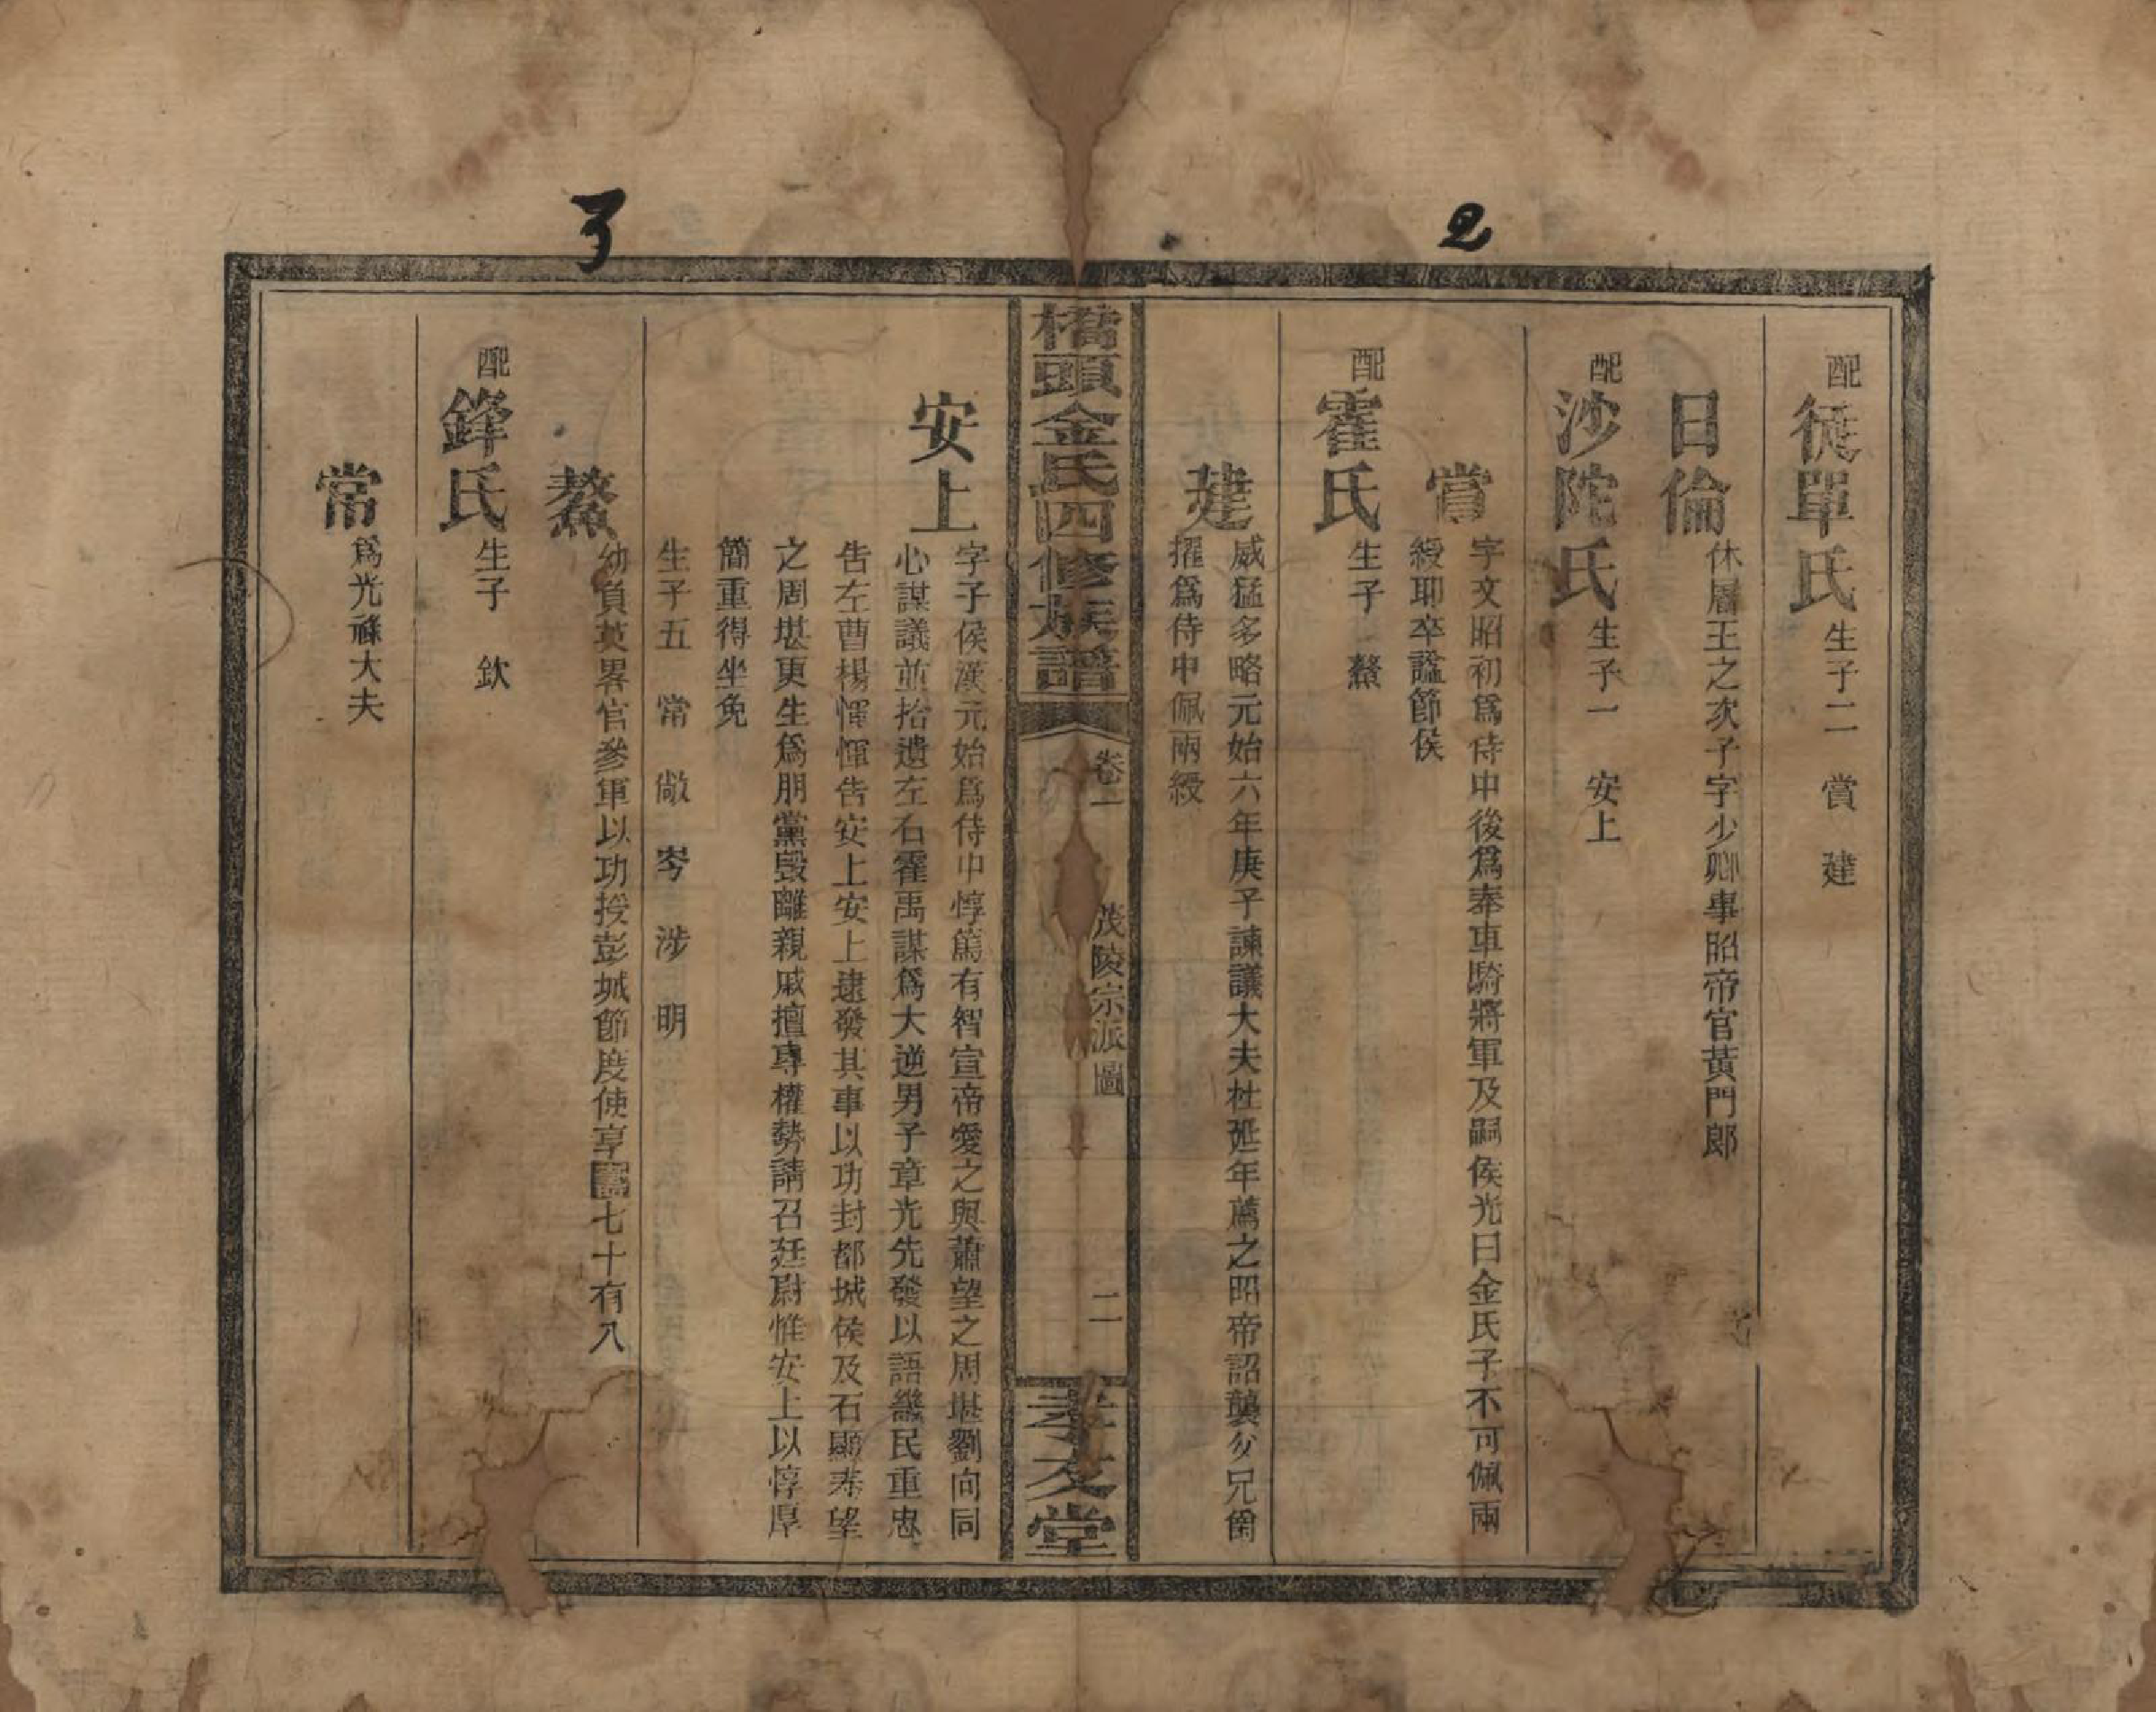 2
配徒單氏生子二 賞 建
日倫休屠王之次子字少卿事昭帝官黃門郎
配沙陀氏生子一 安上
賞字文昭初爲侍中後爲奉車騎將軍及嗣侯光曰金氏子不可佩兩
綬耶卒諡節侯
配霍氏生子 鰲
建威猛多略元始六年庚子諫議大夫杜延年薦之昭帝詔襲父兄爵
擢爲侍中佩兩綬
橋頭金氏四修族譜
卷一 茂陵宗派圖 二
孝友堂
3
安上字子侯漢元始爲侍中惇篤有智宣帝愛之與蕭望之周堪劉向同
心謀議並拾遺左右霍禹謀爲大逆男子章光先發以語幾民重忠
告左曹楊惲惲告安上安上逮發其事以功封都城侯及石顯奏望
之周堪更生爲朋黨毀離親戚擅專權勢請召廷尉惟安上以惇厚
簡重得坐免
生子五 常 敞 岑 涉 明
鰲幼負英畧官參軍以功授彭城節度使享壽七十有八
配鋒氏生子 欽
常爲光祿大夫